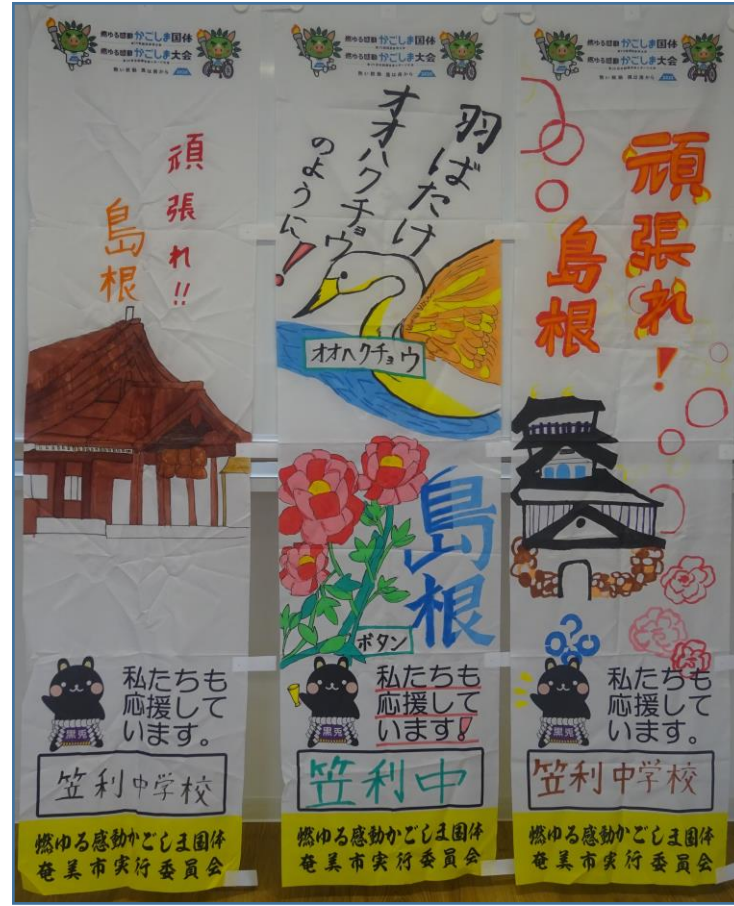 燃ゆる感動かごしま国体
燃ゆる感動かごしま大会
熱い鼓動 風は南から
頑張れ!!
島根
私たちも
応援して
います。
黒兎
笠利中学校
燃ゆる感動かごしま国体
奄美市実行委員会
燃ゆる感動かごしま国体
燃ゆる感動かごしま大会
熱い鼓動 風は南から
羽ばたけ
オオハクチョウ
のように!
オオハクチョウ
島根
ボタン
私たちも
応援して
います!
黒兎
笠利中
燃ゆる感動かごしま国体
奄美市実行委員会
燃ゆる感動かごしま国体
燃ゆる感動かごしま大会
熱い鼓動 風は南から
頑張れ!
島根
私たちも
応援して
います。
黒兎
笠利中学校
燃ゆる感動かごしま国体
奄美市実行委員会